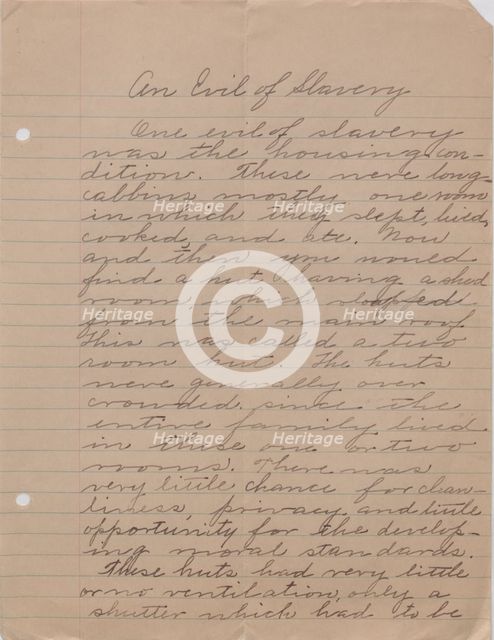 An Evil of Slavery
One evil of slavery
was the housing con-
dition. These were long
cabbins mostly one room
in which they slept, lived,
cooked and ate. Now
and then you would
find a hut having a shed
room which slopped
from the main roof.
This was called a two
room hut. The huts
were generally over
crowded since the
entire family lived
in these one or two
rooms. There was
very little chance for clean-
liness, privacy and little
opportunity for the develop-
ing moral standards.
These huts had very little
or no ventilation, only a
shutter which had to be
Heritage
Heritage
Heritage
Heritage
Heritage
Heritage
Heritage
Heritage
©